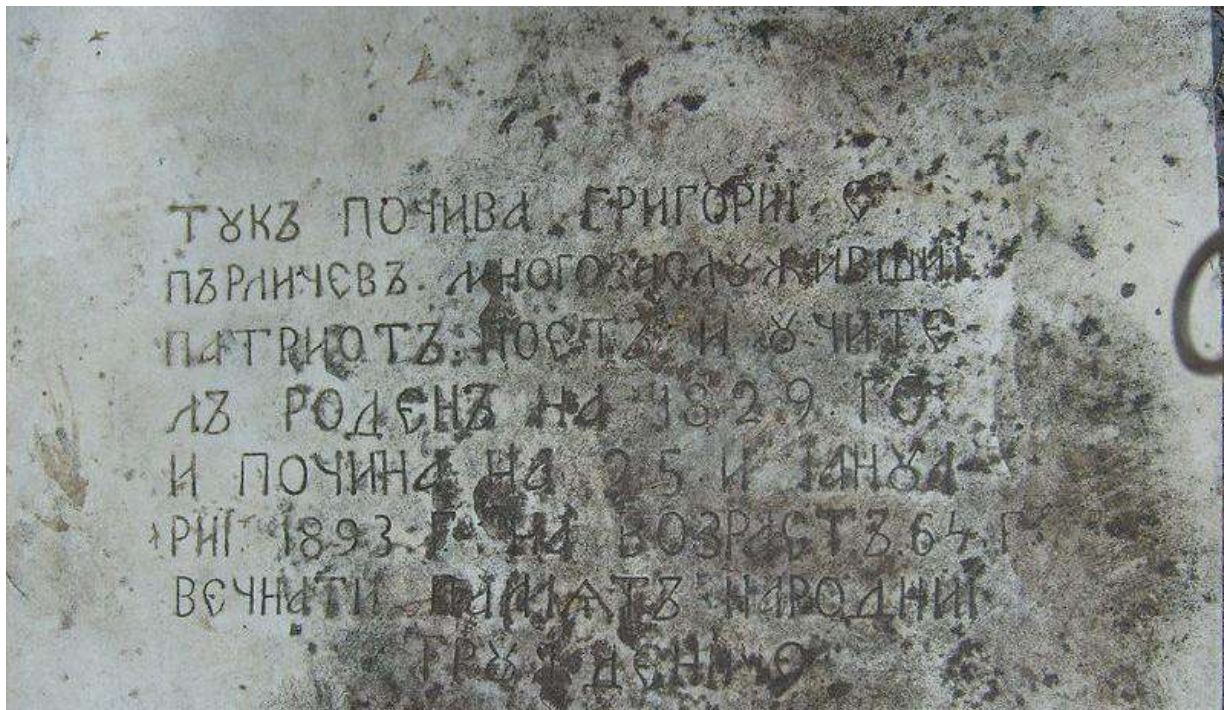 ТꙊКЪ ПОЧИВА ГРИГОРИІ С
ПЪРЛИЧЄВЪ. МНОГОЗАСЛꙊЖИВШИІ
ПАТРИОТЪ. ПОЄТЪ И ꙊЧИТЄ-
ЛЪ РОДЄНЪ НА 1829 ГО:
И ПОЧИНА НА 25 И ІАНꙊА-
РИІ 1893 Г. НА ВОЗРАСТЪ 64 Г
ВЄЧНАТИ ПАМІАТЪ НАРОДНИІ